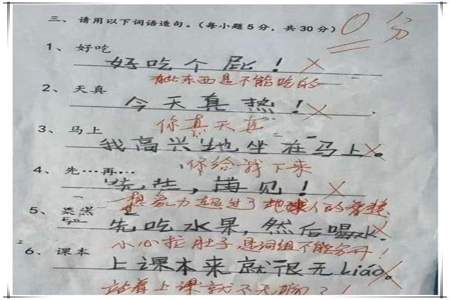 三、请用以下词语造句。(每小题5分,共30分)
0分
1、好吃
好吃个屁!
有些东西是不能吃的
2、天真
今天真热!
你真天真
3、马上
我高兴地坐在马上。
你给我下来
4、先…再…
先生,再见!
想象力超过了地球人的智慧
5、
先吃水果,然后喝水。
小心拉肚子 是词组不能分开!
6、课本
上课本来就很无liao。
站着上课就不无聊了!